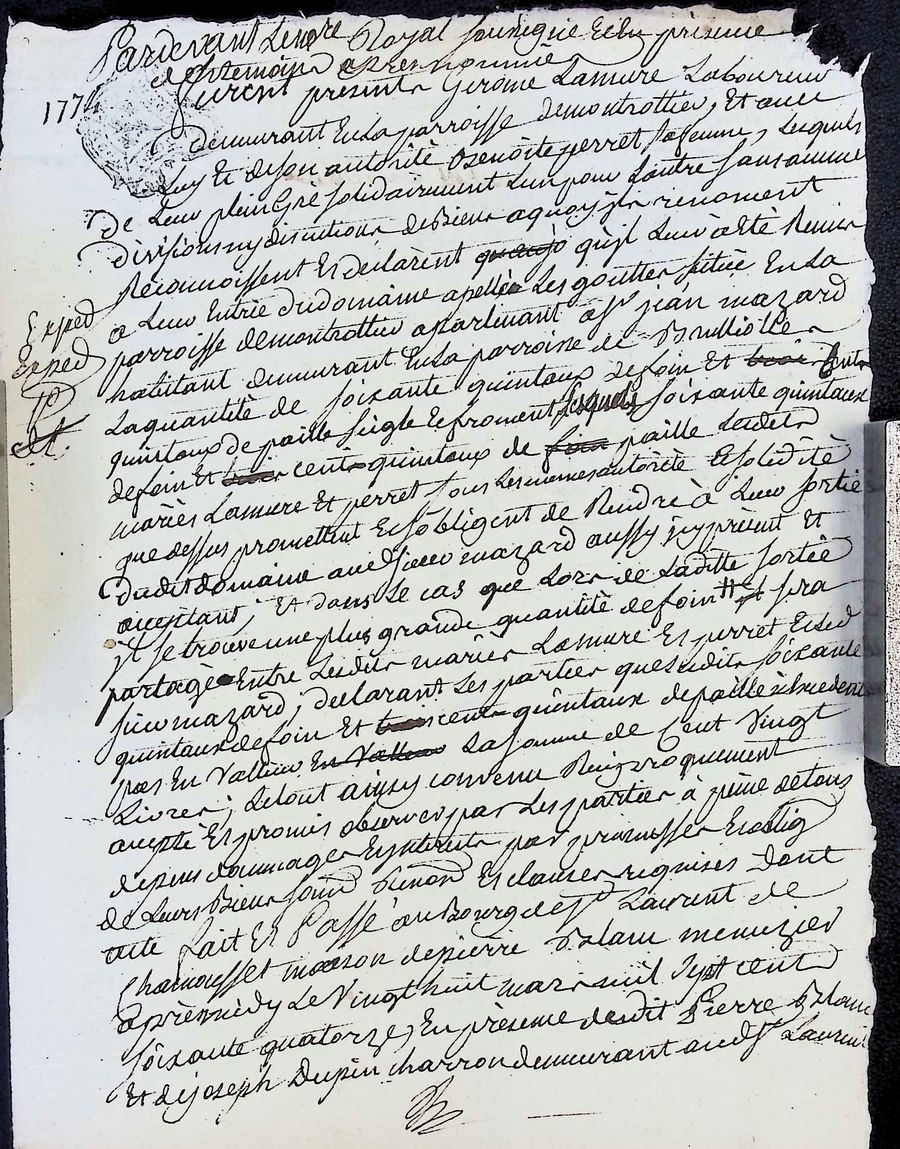 Pardevant Le nre Royal soussigné Et En presence
des temoins apres nommés
1774
furent presents Gerome Lamure Laboureur
demeurant En La parroisse de montrottier, Et avec
Luy Et de son autorité Benoite perret sa femme, Lesquels
de Leur plein Gré solidairement L'un pour L'autre sans aucune
divisions ny discutions de Biens a quoy ils renoncent
Reconnoissent Et declarent qu'il Leur à eté Remis
a Leur Entrée du domaine apellé Les gouttes situé En La
Exped
parroisse de montrottier apartenant a Sr jean mazard
Exped
habitant demeurant En La parroisse de Brulliolles
La quantité de soixante quintaux de foin Et cents
quintaux de paille seigle Et froment Lesquels soixante quintaux
de foin Et cents quintaux de paille Lesdits
mariés Lamure Et perret sous Les memes autorité Et solidité
que dessus promettent Et s'obligent de Rendre à Leur sortie
dudit domaine audit sieur mazard aussy icy présent Et
acceptant; Et dans Le cas que Lors de Laditte sortie
il se trouve une plus grande quantité de foin il sera
partagé Entre Lesdits mariés Lamure Et perret Et led
sieur mazard; declarant Les parties que Lesdits soixante
quintaux de foin Et cents quintaux de paille n'Excedent
pas En Valleur La somme de Cent Vingt
Livres; Le tout ainsy convenu Reciproquement
accepté Et promis observer par Les parties à peine de tous
depens dommages Et interets par promesses Et oblig
de Leurs Biens soumd Renond Et clauses requises dont
acte fait Et Passé au Bourg de St Laurent de
Chamousset maison de pierre Blanc menuzier
après midy Le Vingt huit mars mil sept cent
soixante quatorze, En presence dudit Pierre Blanc
Et de joseph Dupin charron demeurant aud St Laurent